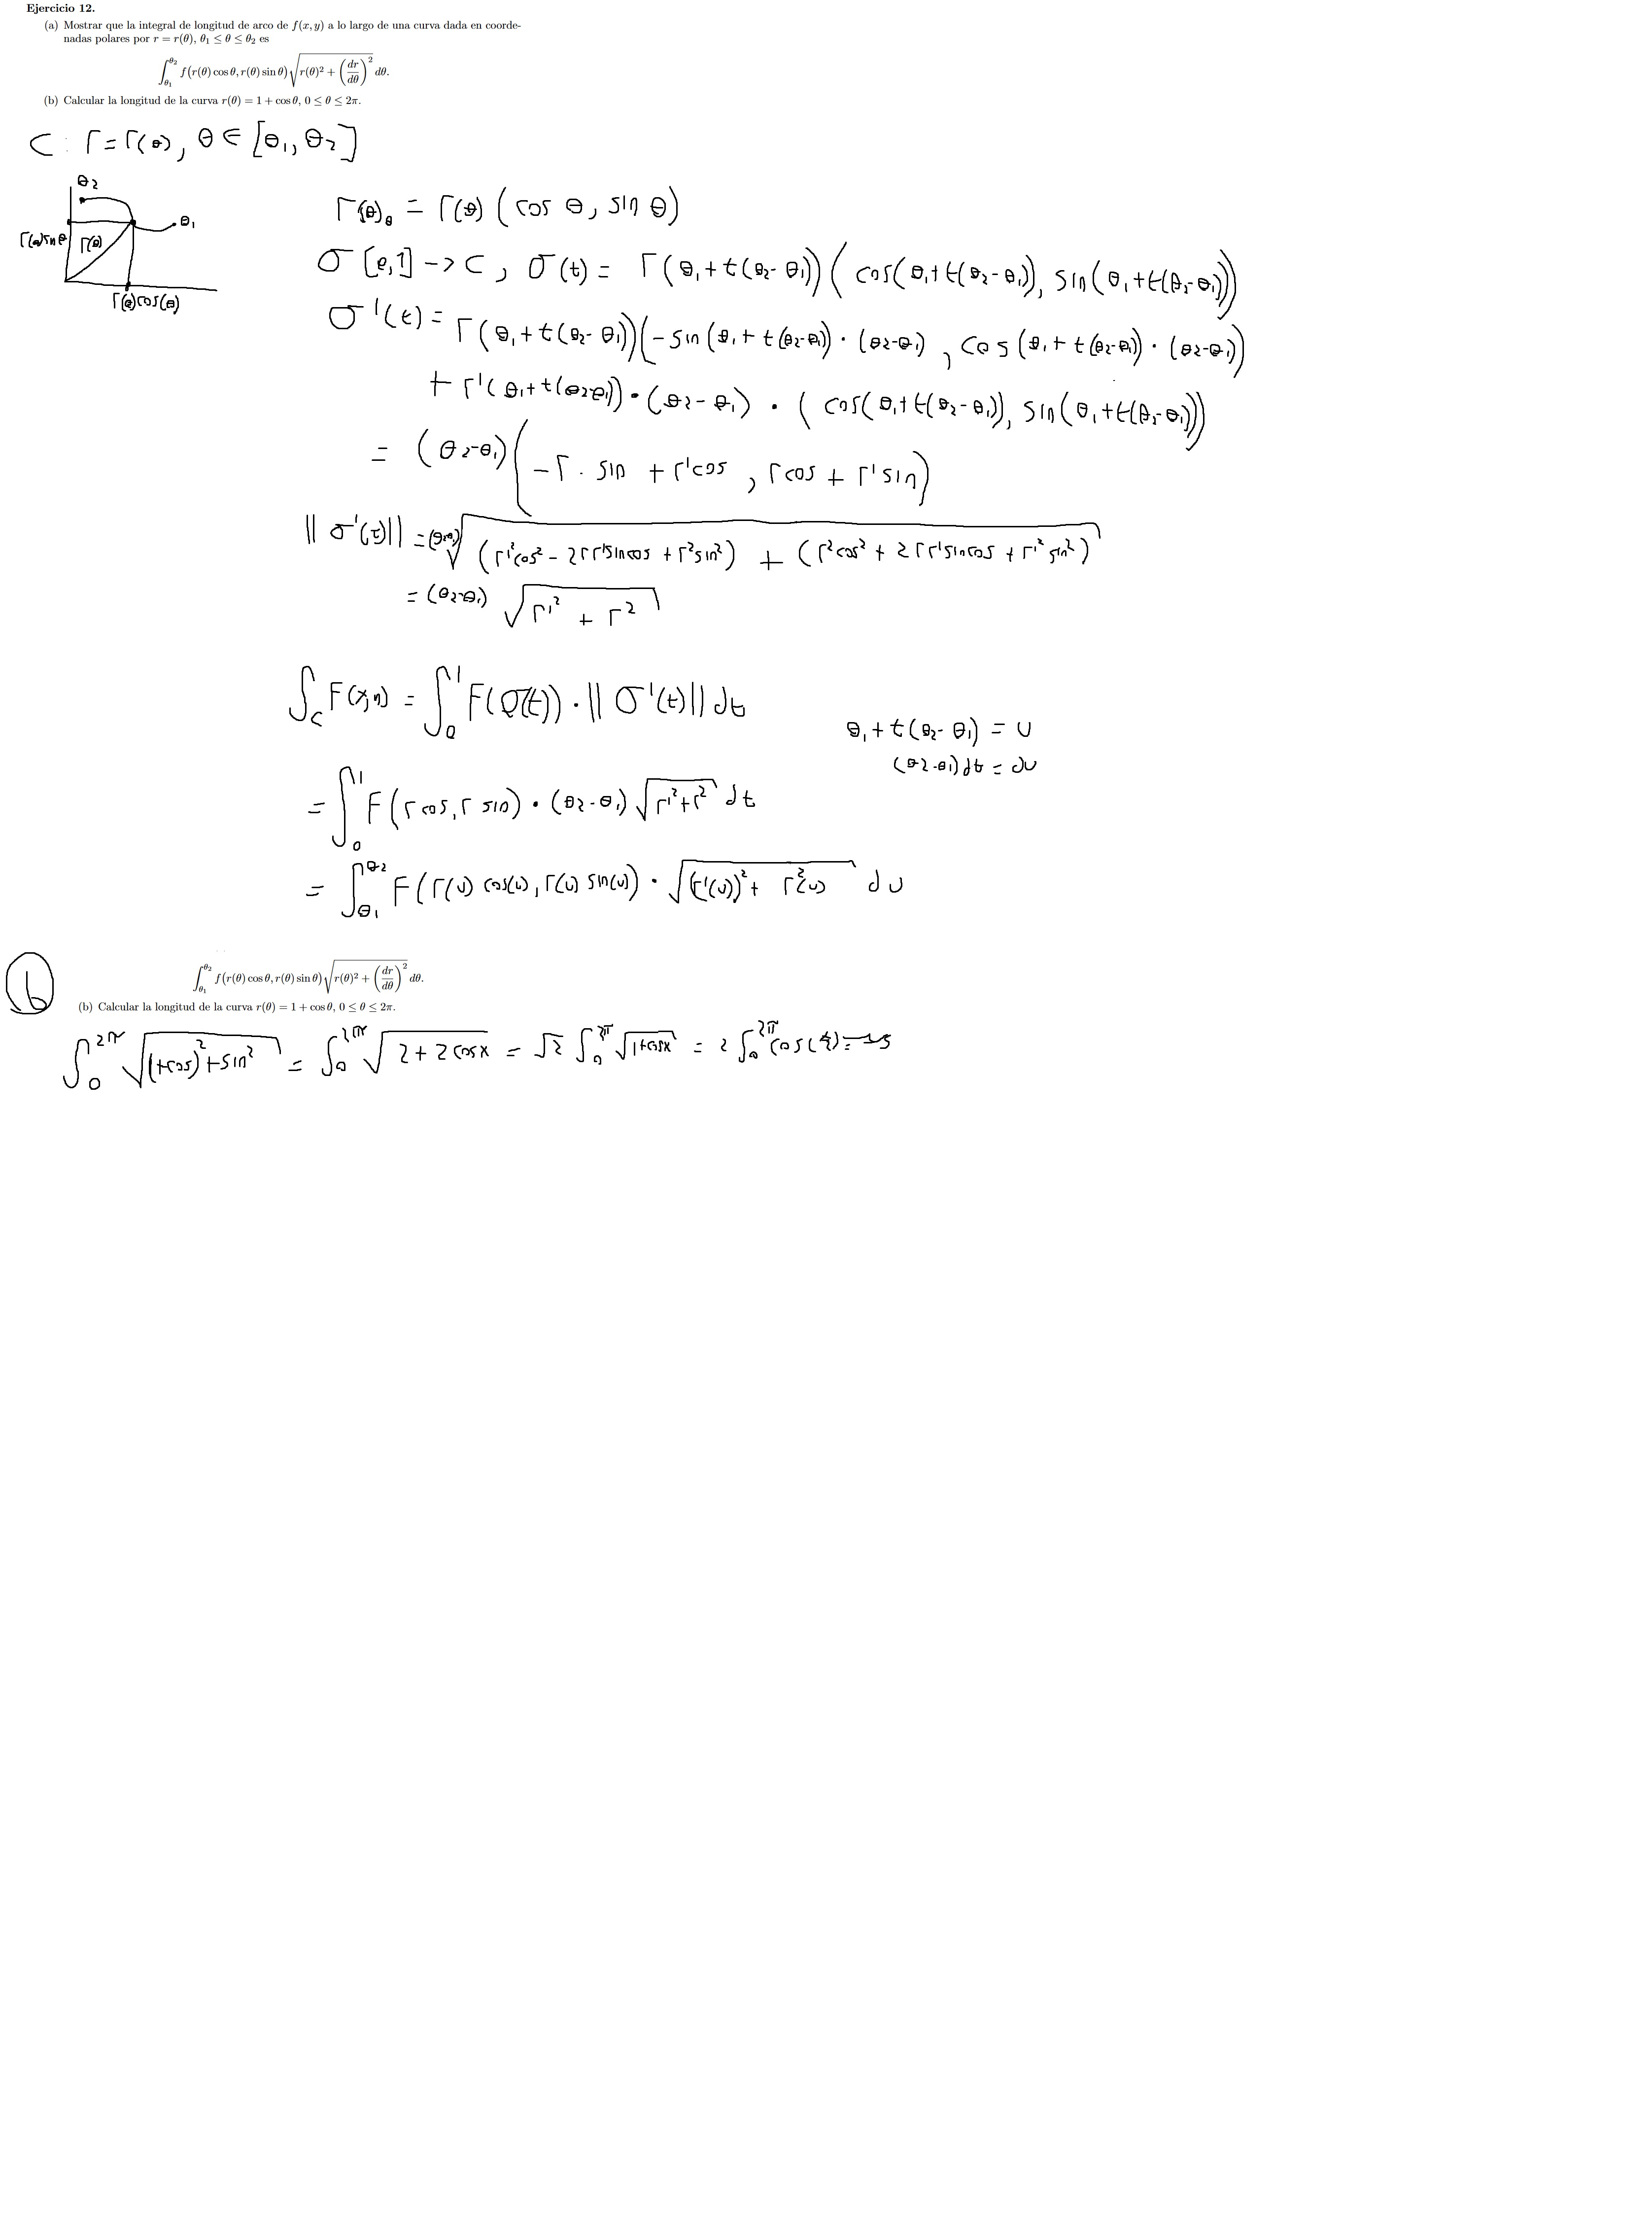 Ejercicio 12.
(a) Mostrar que la integral de longitud de arco de f(x, y) a lo largo de una curva dada en coorde-
nadas polares por r = r(θ), θ₁ ≤ θ ≤ θ₂ es
∫_{θ₁}^{θ₂} f(r(θ) cos θ, r(θ) sin θ) √(r(θ)² + (dr/dθ)²) dθ.
(b) Calcular la longitud de la curva r(θ) = 1 + cos θ, 0 ≤ θ ≤ 2π.
C : r = r(θ), θ ∈ [θ₁, θ₂]
θ₂
θ₁
r(θ) sin θ
r(θ)
r(θ) cos(θ)
r(θ)_θ = r(θ) (cos θ, sin θ)
σ [0,1] -> C, σ(t) = r(θ₁ + t(θ₂ - θ₁)) (cos(θ₁ + t(θ₂ - θ₁)), sin(θ₁ + t(θ₂ - θ₁)))
σ'(t) = r(θ₁ + t(θ₂ - θ₁)) (-sin(θ₁ + t(θ₂ - θ₁)) · (θ₂ - θ₁), cos(θ₁ + t(θ₂ - θ₁)) · (θ₂ - θ₁))
+ r'(θ₁ + t(θ₂ - θ₁)) · (θ₂ - θ₁) · (cos(θ₁ + t(θ₂ - θ₁)), sin(θ₁ + t(θ₂ - θ₁)))
= (θ₂ - θ₁) (-r · sin + r' cos, r cos + r' sin)
||σ'(t)|| = (θ₂-θ₁) √((r'² cos² - 2 r r' sin cos + r² sin²) + (r² cos² + 2 r r' sin cos + r'² sin²))
= (θ₂-θ₁) √(r'² + r²)
∫_C F(x,y) = ∫₀¹ F(σ(t)) · ||σ'(t)|| dt
θ₁ + t(θ₂ - θ₁) = u
(θ₂ - θ₁) dt = du
= ∫₀¹ F(r cos, r sin) · (θ₂ - θ₁) √(r'² + r²) dt
= ∫_{θ₁}^{θ₂} F(r(u) cos(u), r(u) sin(u)) · √((r'(u))² + r²(u)) du
b
∫_{θ₁}^{θ₂} f(r(θ) cos θ, r(θ) sin θ) √(r(θ)² + (dr/dθ)²) dθ.
(b) Calcular la longitud de la curva r(θ) = 1 + cos θ, 0 ≤ θ ≤ 2π.
∫₀^{2π} √((1+cos)² + sin²) = ∫₀^{2π} √(2 + 2 cos x) = √2 ∫₀^{2π} √(1+cos x) = 2 ∫₀^{2π} cos(